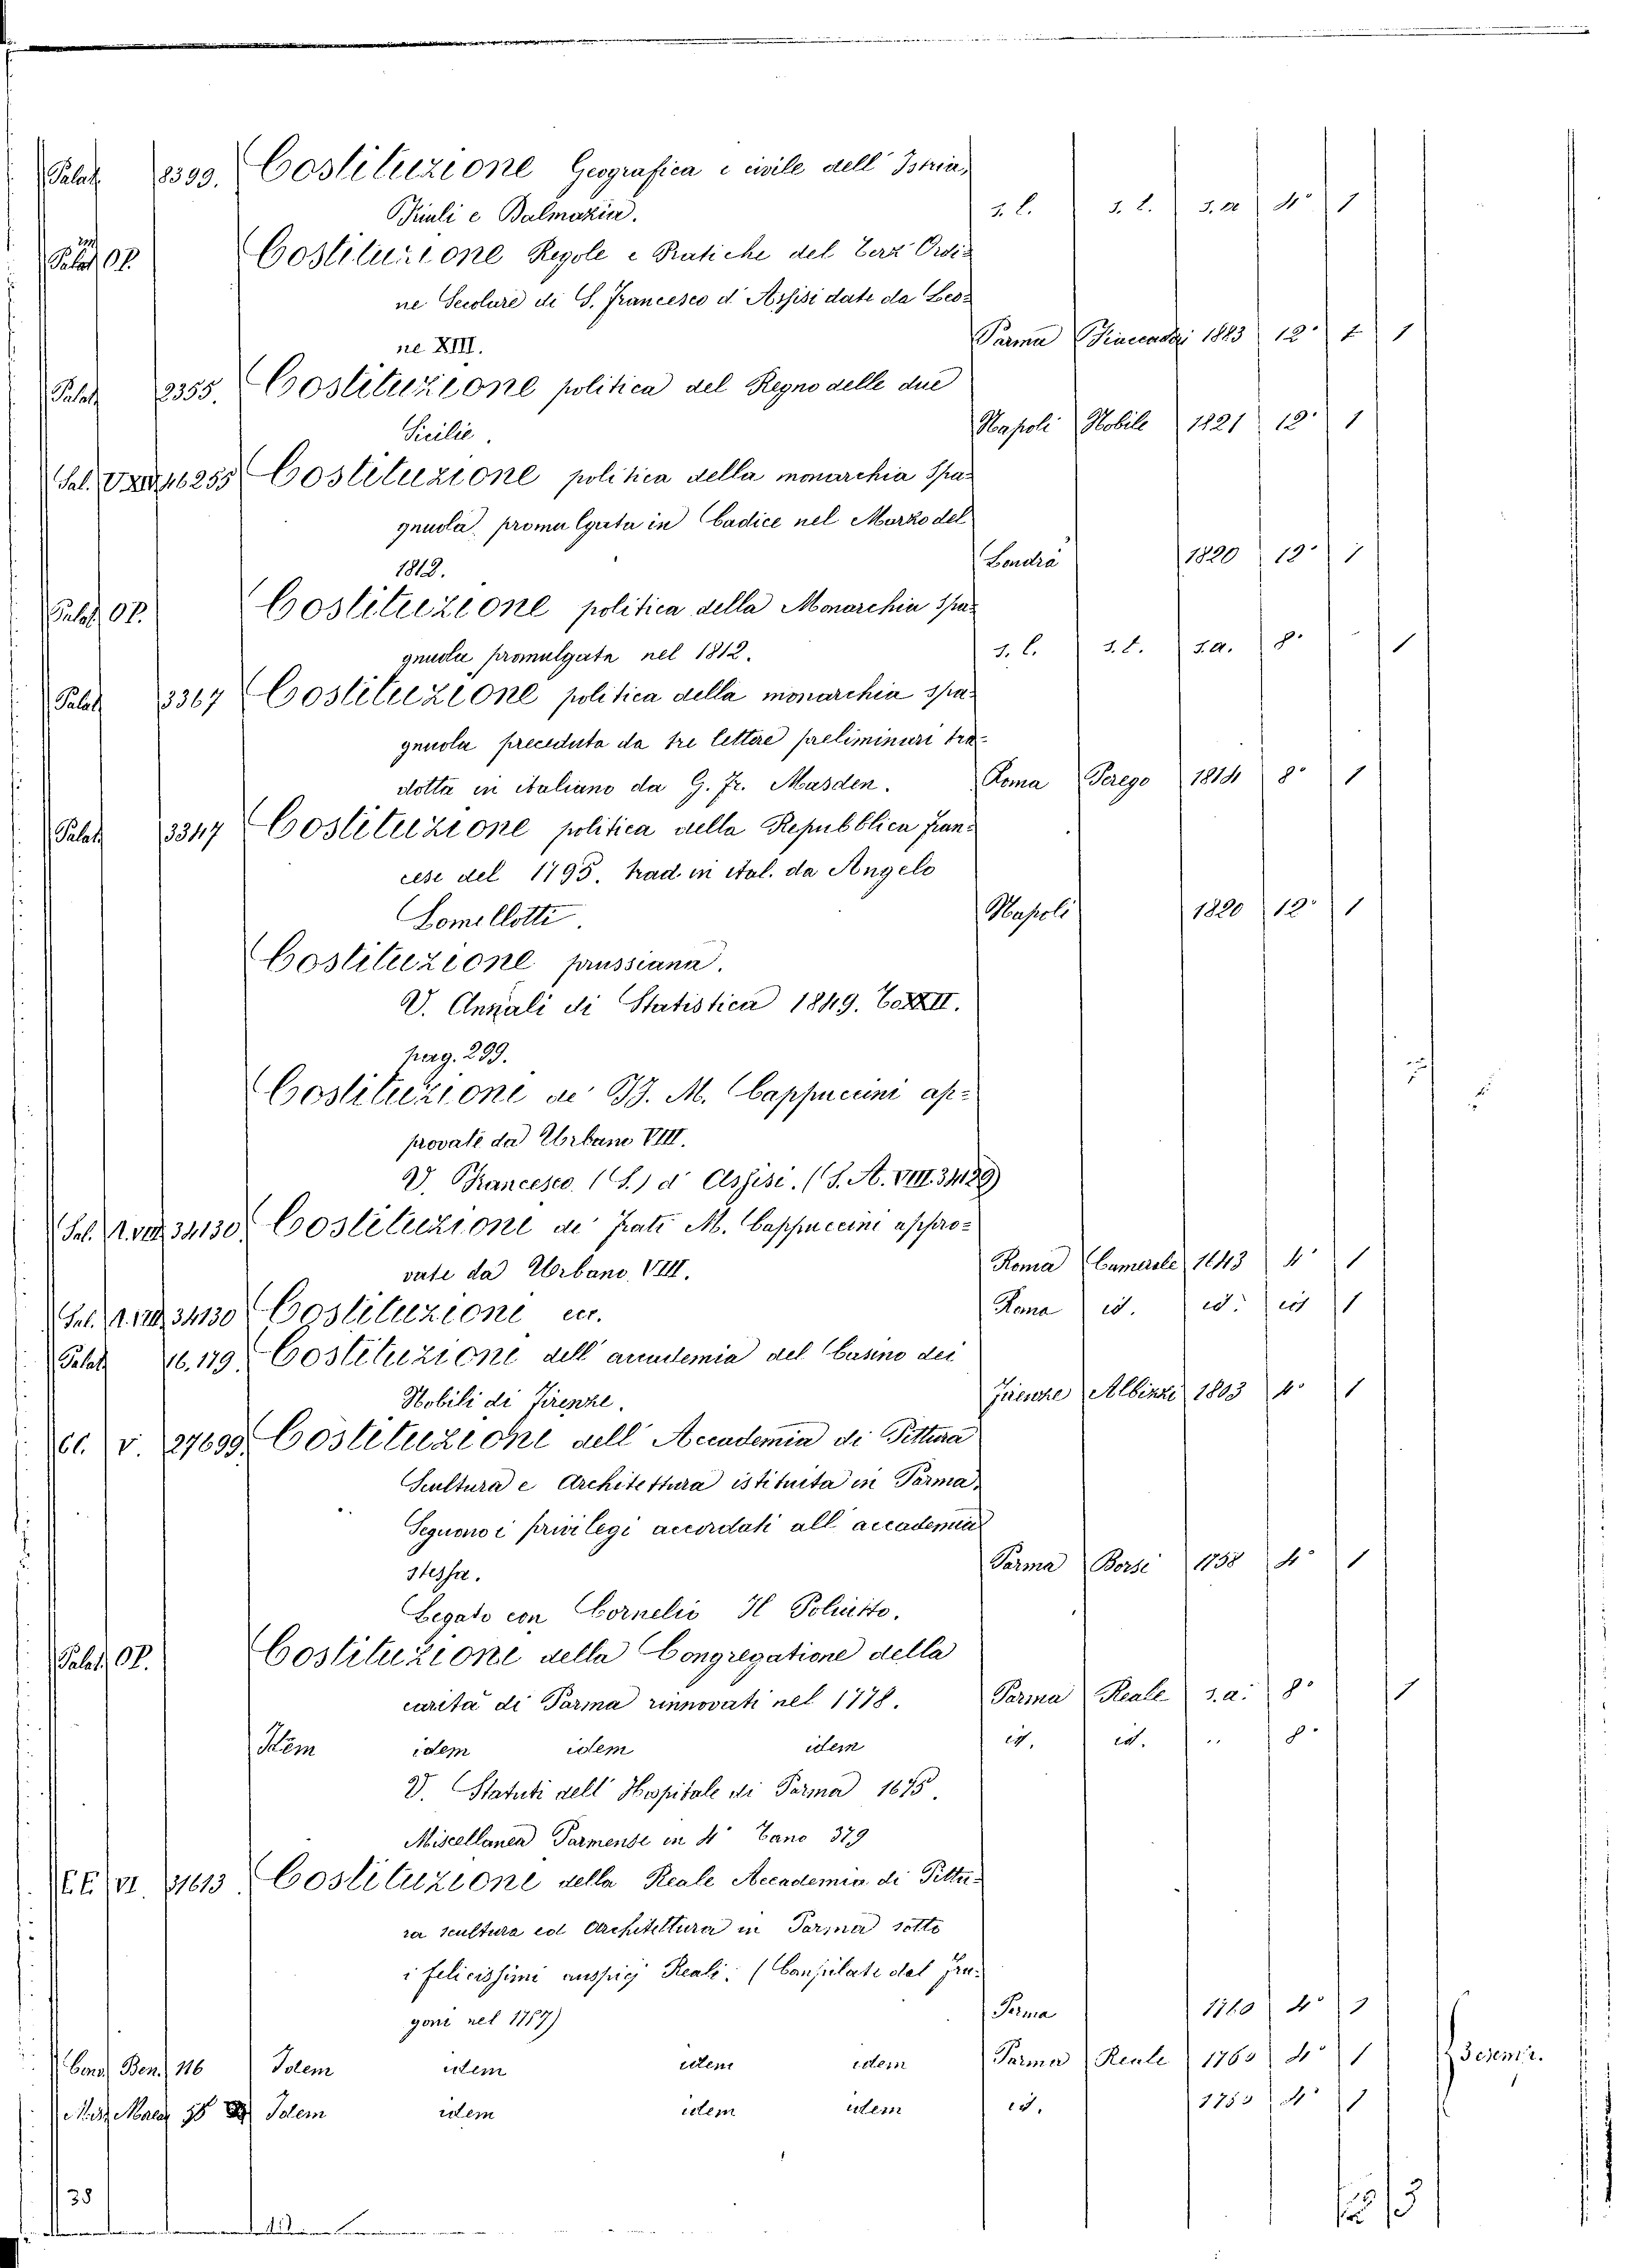 Palat. 8399. Costituzione Geografica e civile dell' Istria,
Friuli e Dalmazia. s. l. s. l. s. a. 4° 1
Palat OP. Costituzione Regole e Pratiche del Terz' Ordi=
ne Secolare di S. Francesco d' Assisi date da Leo=
ne XIII. Parma Fiaccadori 1883 12° 1
Palat 2355. Costituzione politica del Regno delle due
Sicilie. Napoli Nobile 1821 12° 1
Sal. 46255 Costituzione politica della monarchia Spa=
gnuola, promulgata in Cadice nel Marzo del
1812. Londra 1820 12° 1
Palat OP. Costituzione politica della Monarchia Spa=
gnuola promulgata nel 1812. s. l. s. l. s. a. 8° 1
Palat 3367 Costituzione politica della monarchia spa=
gnuola preceduta da tre lettere preliminari tra=
dotta in italiano da G. Fr. Masden. Roma Perego 1814 8° 1
Palat 3347 Costituzione politica della Repubblica fran=
cese del 1795. trad. in ital. da Angelo
Lomellotti. Napoli 1820 12° 1
Costituzione prussiana.
V. Annali di Statistica 1849. XXII.
pag. 299.
Costituzioni de' B. M. Cappuccini ap=
provate da Urbano VIII.
V. Francesco (S.) d' Assisi. (S. A. VIII. 34129)
Sal. A. VIII. 34130. Costituzioni de' frati M. Cappuccini appro=
vate da Urbano VIII. Roma Camerale 1643 4° 1
Sal. A. VIII. 34130 Costituzioni ecc. Roma id. id. id 1
Palat 16.179. Costituzioni dell' accademia del Casino dei
Nobili di Firenze. Firenze Albizzi 1803 4° 1
CC. V. 27699. Costituzioni dell' Accademia di Pittura
Scultura e Architettura istituita in Parma,
Seguono i privilegi accordati all' accademia
stessa. Parma Borsi 1758 4° 1
Legato con Cornelio Il Poliutto.
Palat. OP. Costituzioni della Congregatione della
carità di Parma rinnovati nel 1778. Parma Reale s. a. 8° 1
Idem idem idem idem id. id. " 8°
V. Statuti dell' Hospitale di Parma 1675.
Miscellanea Parmense in 4° 379
EE VI. 31613 Costituzioni della Reale Accademia di Pittu=
ra scultura ed Architettura in Parma sotto
i felicissimi auspicj Reali. (Compilate dal Fru=
goni nel 1757) Parma 1760 4°
Ben. 116 Idem idem idem idem Parma Reale 1760 4° 1
Idem idem idem idem id. 4° 1
38